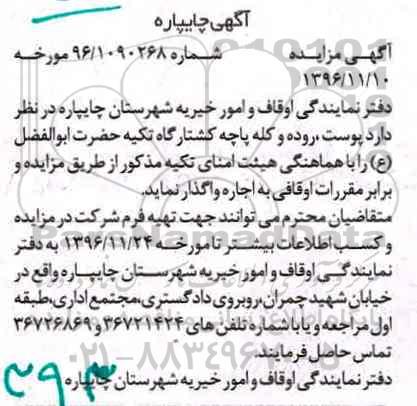 آگهی چایپاره
آگهی مزایده شماره ۹۶/۱۰۹۰۲۶۸ مورخه
۱۳۹۶/۱۱/۱۰
دفتر نمایندگی اوقاف و امور خیریه شهرستان چایپاره در نظر
دارد پوست ،روده و کله پاچه کشتارگاه تکیه حضرت ابوالفضل
(ع) را با هماهنگی هیئت امنای تکیه مذکور از طریق مزایده و
برابر مقررات اوقافی به اجاره واگذار نماید.
متقاضیان محترم می توانند جهت تهیه فرم شرکت در مزایده
و کسب اطلاعات بیشتر تا مورخه ۱۳۹۶/۱۱/۲۴ به دفتر
نمایندگی اوقاف و امور خیریه شهرستان چایپاره واقع در
خیابان شهید چمران،روبروی دادگستری،مجتمع اداری،طبقه
اول مراجعه و یا با شماره تلفن های ۳۶۷۲۱۴۲۴ و ۳۶۷۲۶۸۶۹
تماس حاصل فرمایند.
۰۲۱-۸۸۳۴۹۶۷۰-۵
دفتر نمایندگی اوقاف و امور خیریه شهرستان چایپاره